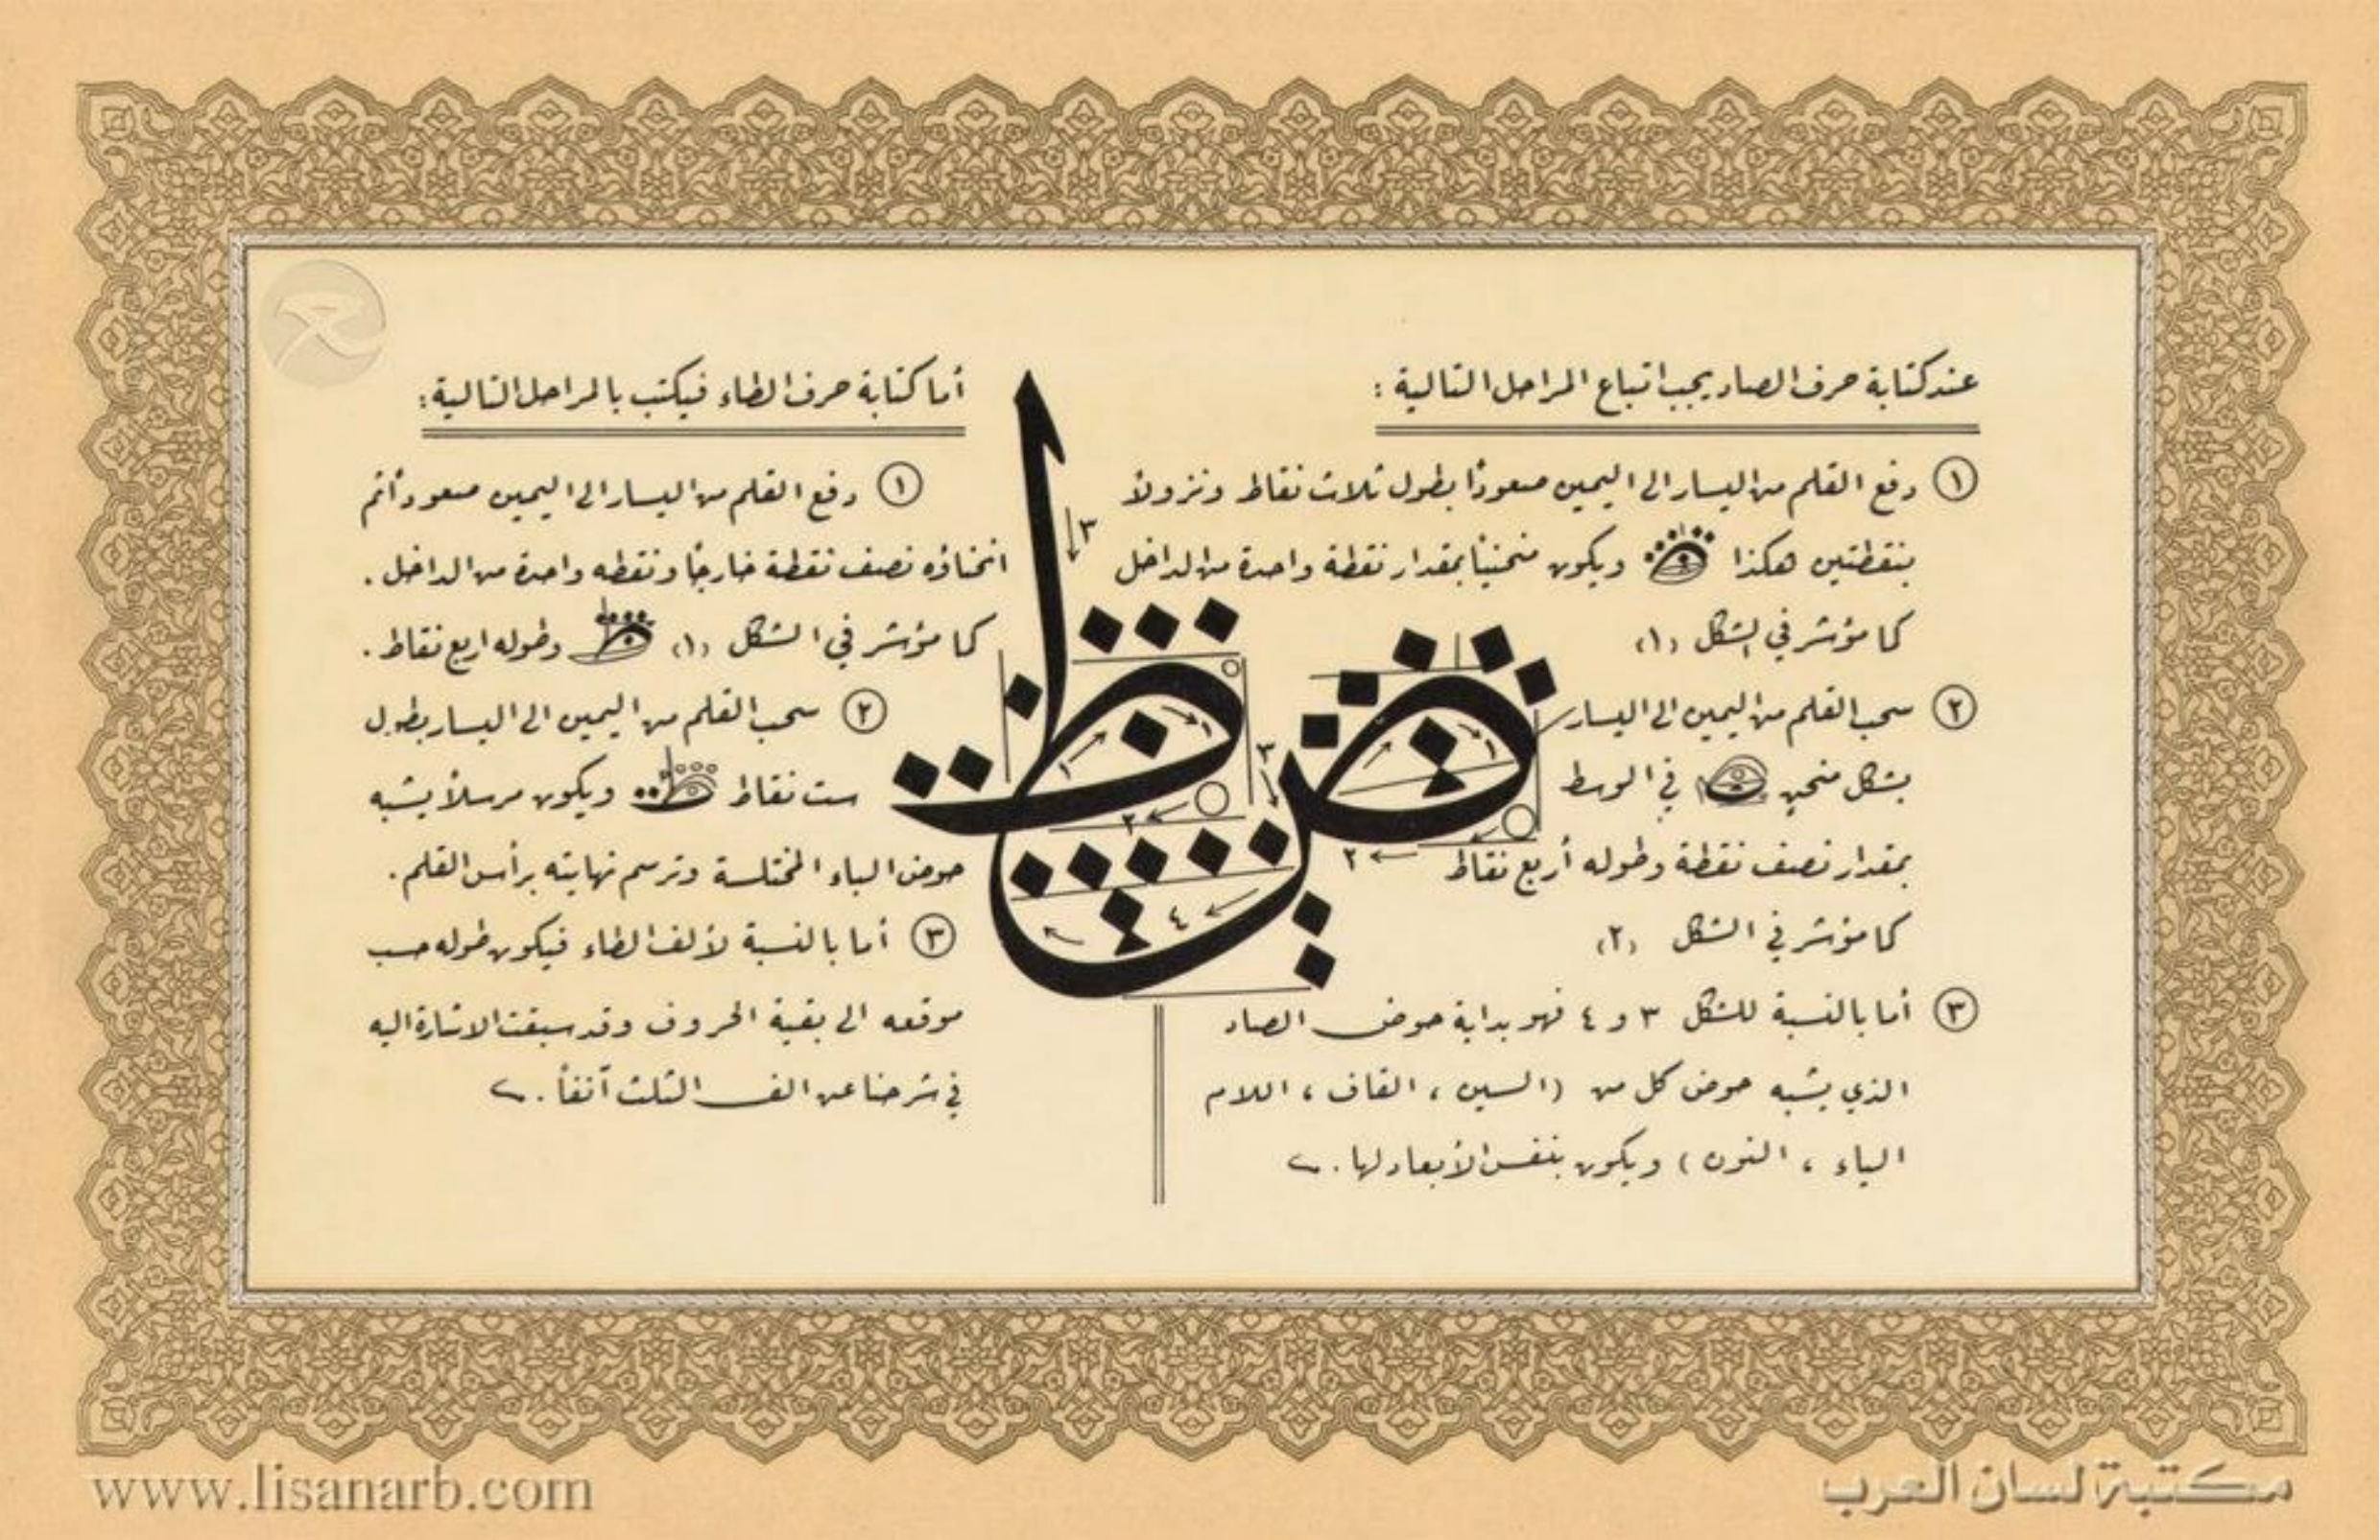 عند كتابة حرف الصاد يجب اتباع المراحل التالية :
١ دفع القلم من اليسار الى اليمين صعودًا بطول ثلاث نقاط ونزولاً
بنقطتين هكذا ويكون منحنياً بمقدار نقطة واحدة من الداخل
كما مؤشر في الشكل (١)
٢ سحب القلم من اليمين الى اليسار
بشكل منحنٍ في الوسط
بمقدار نصف نقطة وطوله أربع نقاط
كما مؤشر في الشكل (٢)
٣ أما بالنسبة للشكل ٣ و ٤ فهو بداية حوض الصاد
الذي يشبه حوض كل من (السين ، القاف ، اللام
الياء ، النون) ويكون بنفس الأبعاد لها .
أما كتابة حرف الطاء فيكتب بالمراحل التالية :
١ دفع القلم من اليسار الى اليمين صعود أتم
انحناؤه نصف نقطة خارجاً ونقطه واحدة من الداخل .
كما مؤشر في الشكل (١) وطوله اربع نقاط .
٢ سحب القلم من اليمين الى اليسار بطول
ست نقاط ويكون مرسلاً يشبه
حوض الباء المختلسة وترسم نهايته برأس القلم .
٣ أما بالنسبة لألف الطاء فيكون طوله حسب
موقعه الى بقية الحروف وقد سبقت الاشارة اليه
في شرحنا عن الف الثلث آنفاً .
ص ط
٣
١
١
٢
٣
١
٢
٤
www.lisanarb.com
مكتبة لسان العرب